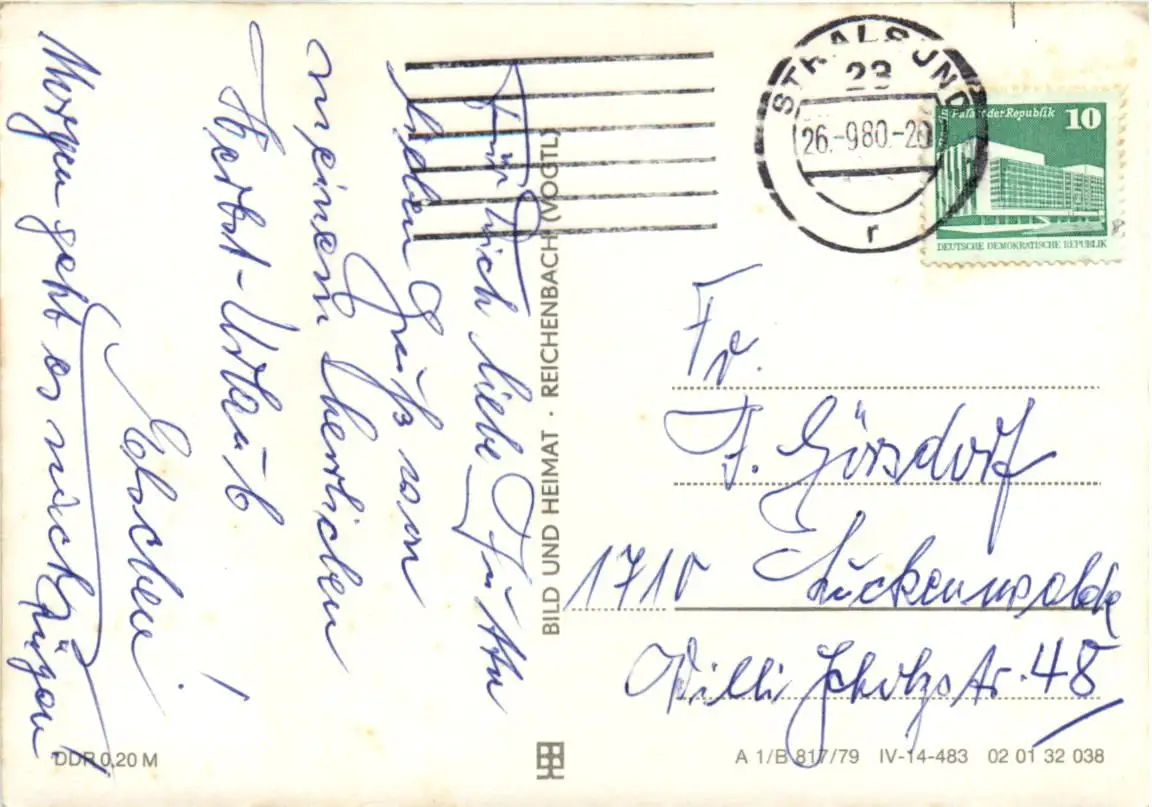 Für Dich liebe Jutta
lieben Gruß von
meinem herrlichen
Herbst-Urlaub
Elschen!
Morgen geht es nach
Rügen!
BILD UND HEIMAT · REICHENBACH (VOGTL)
STRALSUND
23
26.-9.80.-20
r
Palast der Republik 10
DEUTSCHE DEMOKRATISCHE REPUBLIK
Fr.
J. Görsdorf
1710 Luckenwalde
Willi Scholzstr. 48
DDR 0,20 M
A 1/B 817/79 IV-14-483 02 01 32 038